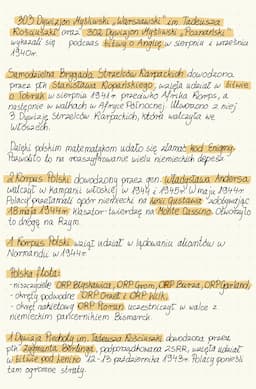 303 Dywizjon Myśliwski „Warszawski" im. Tadeusza
Kościuszki oraz 302 Dywizjon Myśliwski „Poznański"
wykazali się podczas bitwy o Anglię w sierpniu i wrześniu
1940r.
Samodzielna Brygada Strzelców Karpackich dowodzona
przez płn Stanisława Kopańskiego, wzięła udział w bitwie
o Tobruk w sierpniu 1941r przeciwko Afrika Korps, a
następnie w walkach w Afryce Północnej. Utworzono z niej
3 Dywizję Strzelców Karpackich, która walczyła we
Włoszech.
Dzięki polskim matematykom udało się złamać kod Enigmy.
Pozwoliło to na rozszyfrowanie wielu niemieckich depesz.
2 Korpus Polski dowodzony przez gen. Władysława Andersa
walczył w kampanii włoskiej w 1944 i 1945r. W maju 1944r
Polacy przełamali opór niemiecki na linii Gustawa zdobywając
18 maja 1944r klasztor-twierdzę na Monte Cassino. Otworzyło
to drogę na Rzym.
1 Korpus Polski wziął udział w lądowaniu aliantów w
Normandii w 1944r.
Polska flota:
-niszczyciele ORP Błyskawica, ORP Grom, ORP Burza, ORP Garland,
- okręty podwodne ORP Orzeł i ORP Wilk,
- okręt rakietowy ORP Piorun uczestniczył w walce z
niemieckim pancernikiem Bismarck.
1 Dywizja Piechoty im. Tadeusza Kościuszki dowodzona przez
płk Zygmunta Berlinga, podporządkowana ZSRR, wzięła udział
w bitwie pod Lenino 12-13 października 1943r. Polacy ponieśli
tam ogromne straty.